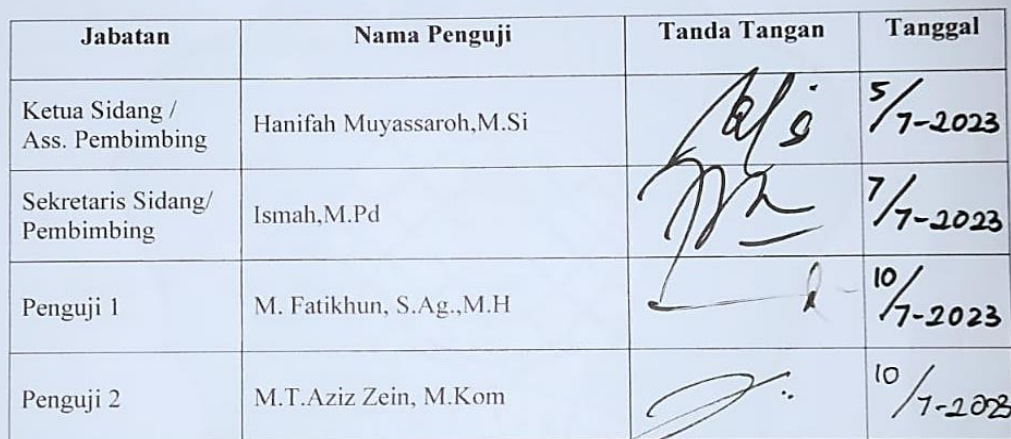 Jabatan Nama Penguji Tanda Tangan Tanggal
Ketua Sidang /
Ass. Pembimbing Hanifah Muyassaroh,M.Si 5/7-2023
Sekretaris Sidang/
Pembimbing Ismah,M.Pd 7/7-2023
Penguji 1 M. Fatikhun, S.Ag.,M.H 10/7-2023
Penguji 2 M.T.Aziz Zein, M.Kom 10/7-2023